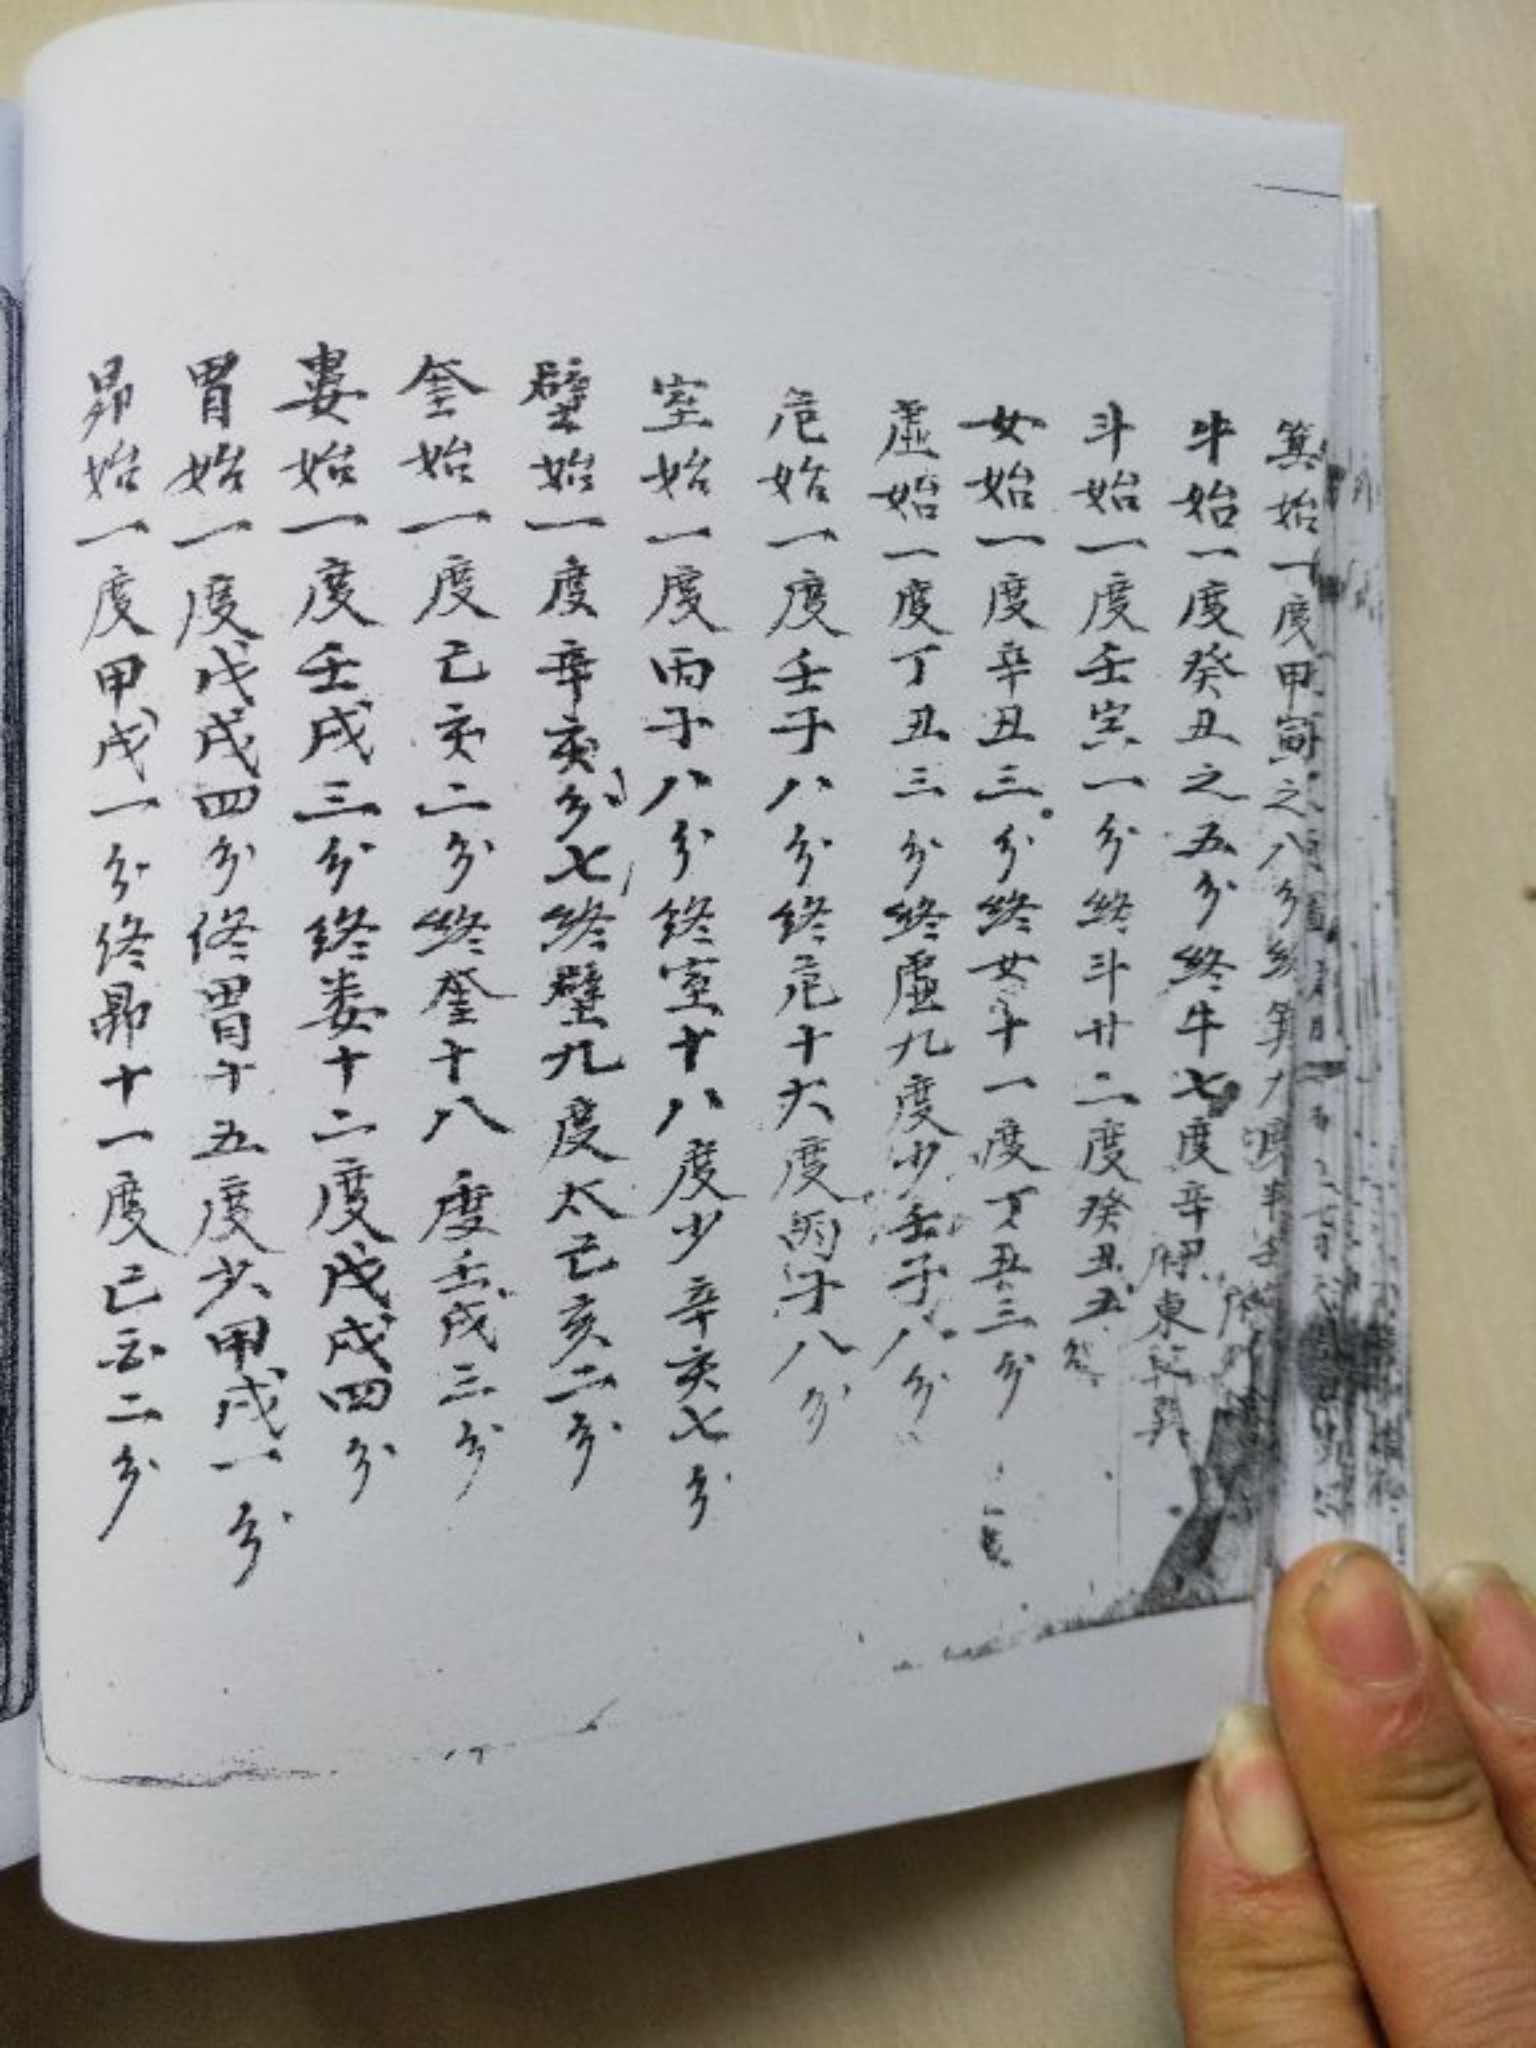 箕始一度甲寅之八分終箕九度半壬
牛始一度癸丑之五分終牛七度辛
斗始一度壬寅一分終斗廿二度癸丑五
女始一度辛丑三分終女十一度丁丑三分
虛始一度丁丑三分終虛九度少壬子八分
危始一度壬子八分終危十六度丙子八分
室始一度丙子八分終室十八度少辛亥七分
壁始一度辛亥分七終壁九度太己亥二分
奎始一度己亥二分終奎十八度壬戌三分
婁始一度壬戌三分終娄十二度戊戌四分
胃始一度戊戌四分终胃十五度少甲戌一分
昴始一度甲戌一分終昴十一度己酉二分